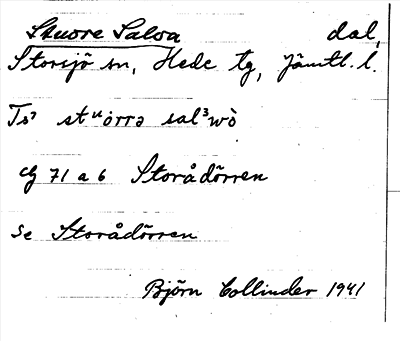 Stuore Salva dal,
Storsjö sn, Hede tg, Jämtl. l.
st ͧ örrə sal³wò
71 a 6 Storådörren
se Storådörren
Björn Collinder 1941